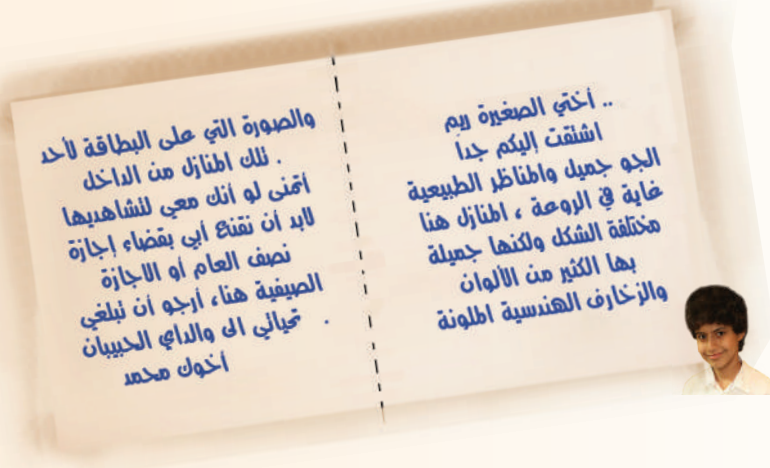 .. أختي الصغيرة ريم
اشتقت إليكم جداً
الجو جميل والمناظر الطبيعية
غاية في الروعة ، المنازل هنا
مختلفة الشكل ولكنها جميلة
بها الكثير من الألوان
والزخارف الهندسية الملونة
والصورة التي على البطاقة لأحد
تلك المنازل من الداخل .
أتمنى لو أنك معي لتشاهديها
لابد أن نقنع أبي بقضاء إجازة
نصف العام أو الاجازة
الصيفية هنا، أرجو أن تبلغي
تحياتي الى والداي الحبيبان .
أخوك محمد